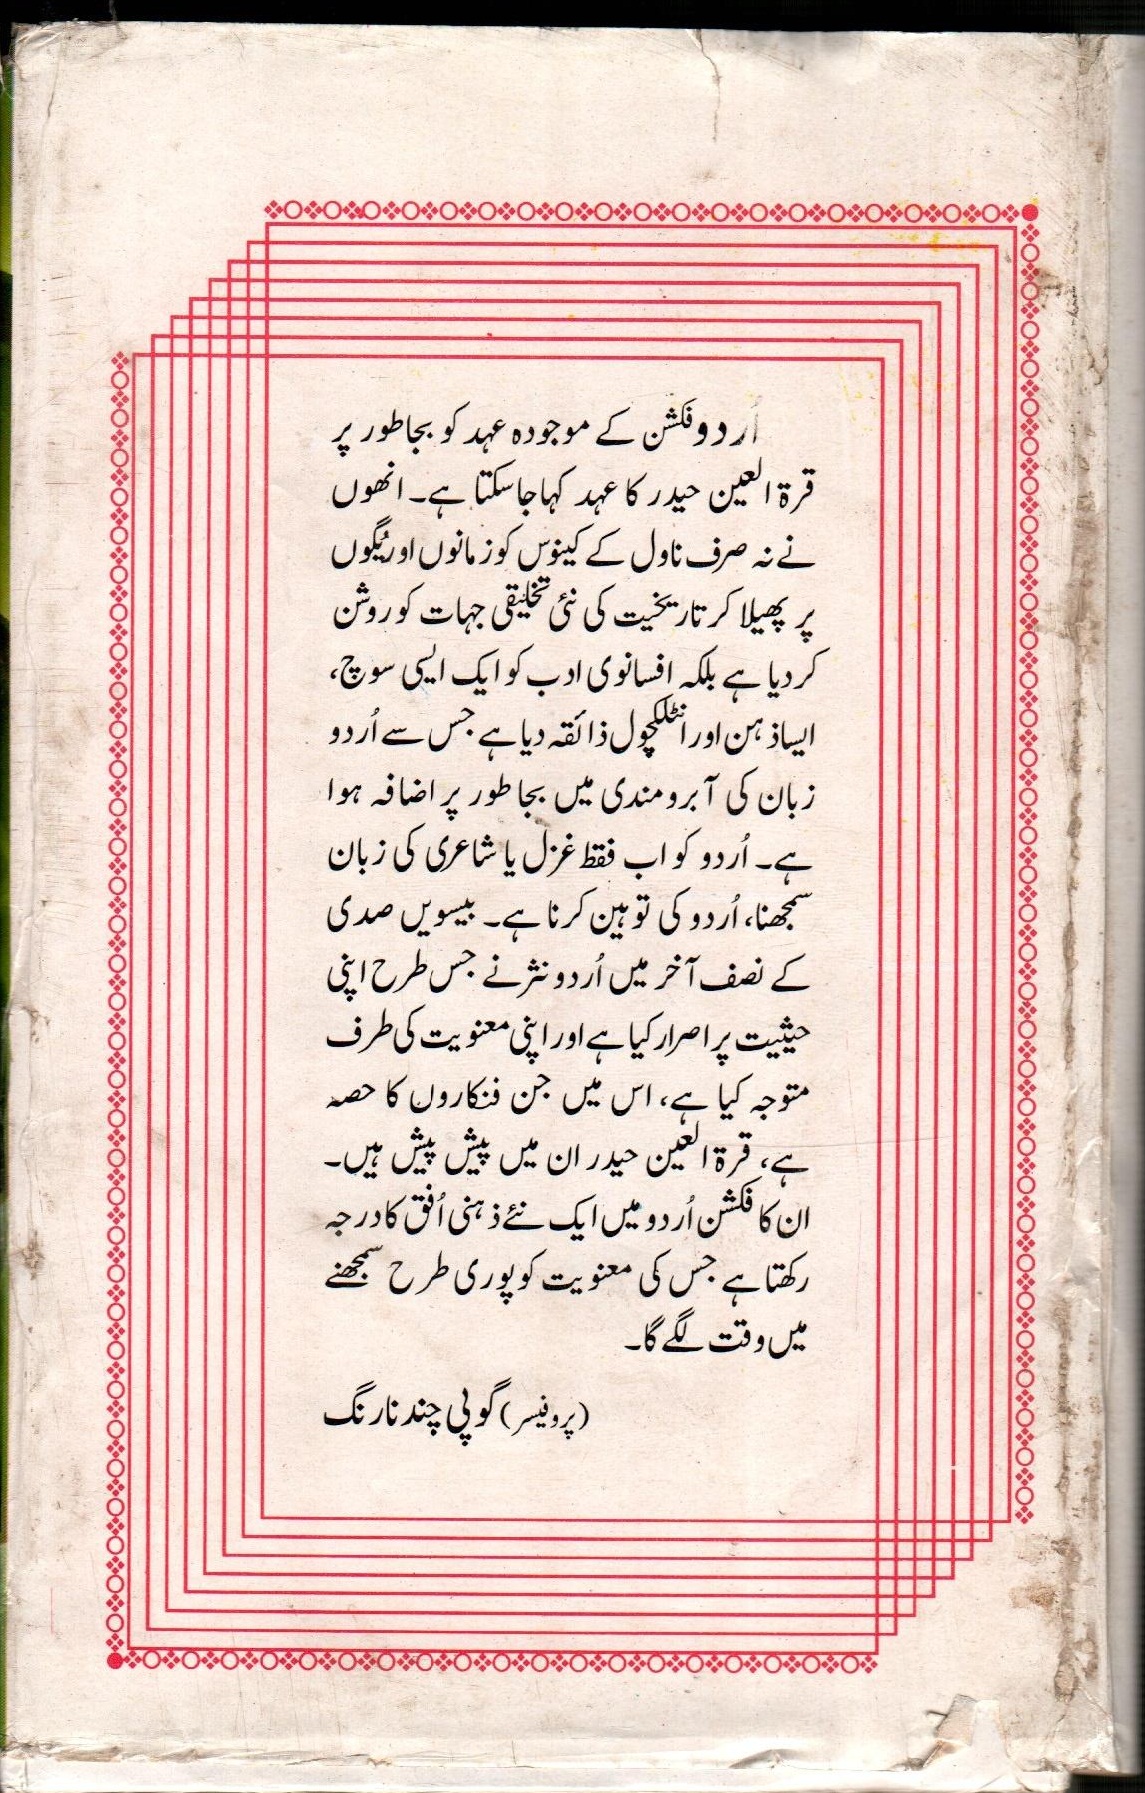 اُردو فکشن کے موجودہ عہد کو بجا طور پر
قرۃ العین حیدر کا عہد کہا جا سکتا ہے۔ انھوں
نے نہ صرف ناول کے کینوس کو زمانوں اور یُگوں
پر پھیلا کر تاریخیت کی نئی تخلیقی جہات کو روشن
کر دیا ہے بلکہ افسانوی ادب کو ایک ایسی سوچ،
ایسا ذہن اور انٹلکچول ذائقہ دیا ہے جس سے اُردو
زبان کی آبرومندی میں بجا طور پر اضافہ ہوا
ہے۔ اُردو کو اب فقط غزل یا شاعری کی زبان
سمجھنا، اُردو کی توہین کرنا ہے۔ بیسویں صدی
کے نصف آخر میں اُردو نثر نے جس طرح اپنی
حیثیت پر اصرار کیا ہے اور اپنی معنویت کی طرف
متوجہ کیا ہے، اس میں جن فنکاروں کا حصہ
ہے، قرۃ العین حیدر ان میں پیش پیش ہیں۔
ان کا فکشن اُردو میں ایک نئے ذہنی اُفق کا درجہ
رکھتا ہے جس کی معنویت کو پوری طرح سمجھنے
میں وقت لگے گا۔
(پروفیسر) گوپی چند نارنگ